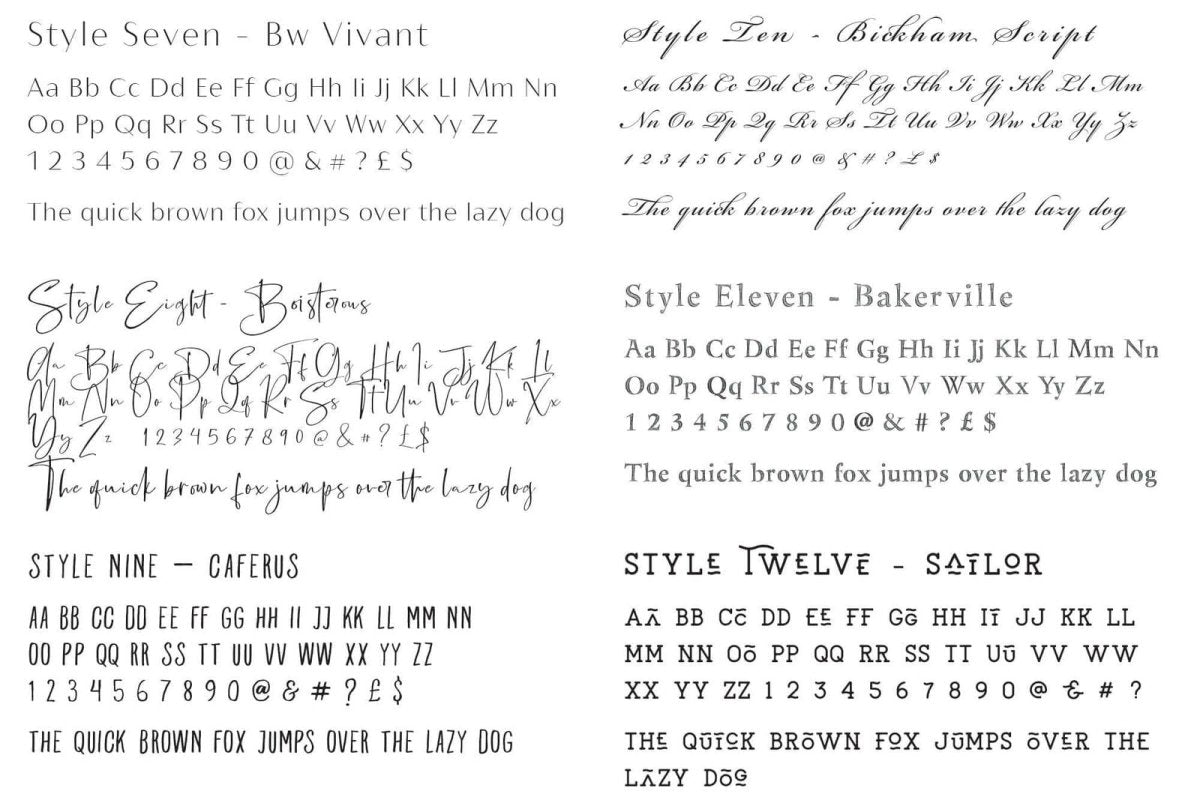 Style Seven - Bw Vivant
Aa Bb Cc Dd Ee Ff Gg Hh Ii Jj Kk Ll Mm Nn
Oo Pp Qq Rr Ss Tt Uu Vv Ww Xx Yy Zz
1 2 3 4 5 6 7 8 9 0 @ & # ? £ $
The quick brown fox jumps over the lazy dog
Style Eight - Boisterous
Aa Bb Cc Dd Ee Ff Gg Hh Ii Jj Kk Ll
Mm Nn Oo Pp Qq Rr Ss Tt Uu Vv Ww Xx
Yy Zz 1 2 3 4 5 6 7 8 9 0 @ & # ? £ $
The quick brown fox jumps over the lazy dog
STYLE NINE – CAFERUS
AA BB CC DD EE FF GG HH II JJ KK LL MM NN
OO PP QQ RR SS TT UU VV WW XX YY ZZ
1 2 3 4 5 6 7 8 9 0 @ & # ? £ $
THE QUICK BROWN FOX JUMPS OVER THE LAZY DOG
Style Ten - Bickham Script
Aa Bb Cc Dd Ee Ff Gg Hh Ii Jj Kk Ll Mm
Nn Oo Pp Qq Rr Ss Tt Uu Vv Ww Xx Yy Zz
1 2 3 4 5 6 7 8 9 0 @ & # ? £ $
The quick brown fox jumps over the lazy dog
Style Eleven - Bakerville
Aa Bb Cc Dd Ee Ff Gg Hh Ii Jj Kk Ll Mm Nn
Oo Pp Qq Rr Ss Tt Uu Vv Ww Xx Yy Zz
1 2 3 4 5 6 7 8 9 0 @ & # ? £ $
The quick brown fox jumps over the lazy dog
STYLE TWELVE - SAILOR
AA BB CC DD EE FF GG HH II JJ KK LL
MM NN OO PP QQ RR SS TT UU VV WW
XX YY ZZ 1 2 3 4 5 6 7 8 9 0 @ & # ?
THE QUICK BROWN FOX JUMPS OVER THE
LAZY DOG